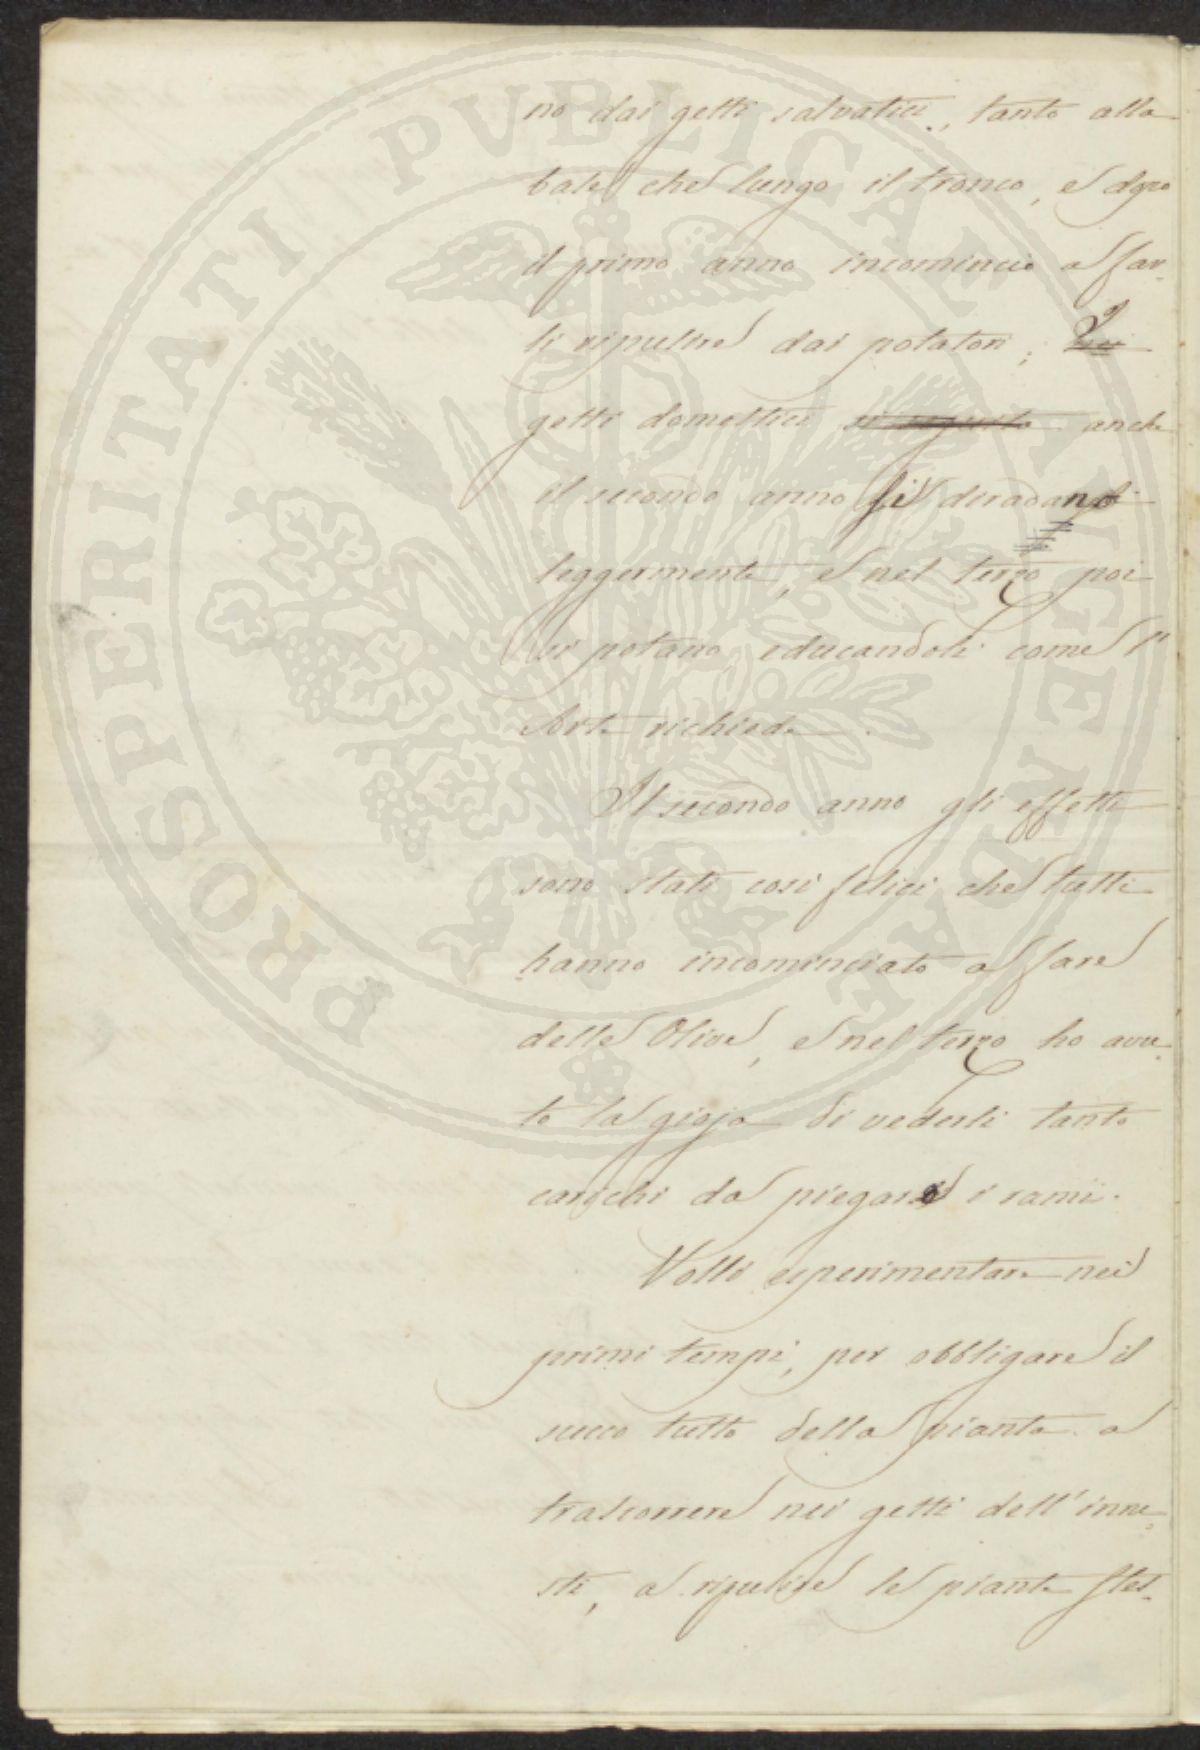 no dai getti salvatici, tanto alla
base che lungo il tronco, e dopo
il primo anno incomincio a far-
li ripulire dai potatori; I
getti domestici si seguita anche
il secondo anno si diradano
leggermente, e nel terzo poi
si potano educandoli come l'
Arte richiede.
Il secondo anno gli effetti
sono stati così felici che tutti
hanno incominciato a fare
delle Olive, e nel terzo ho avu-
to la gioja di vederli tanto
carichi da piegare i rami.
Volli esperimentare nei
primi tempi, per obbligare il
succo tutto della pianta a
trascorrere nei getti dell'inne-
sti, a ripulire le piante stes-
PROSPERITATI PUBLICAE AUGENDAE